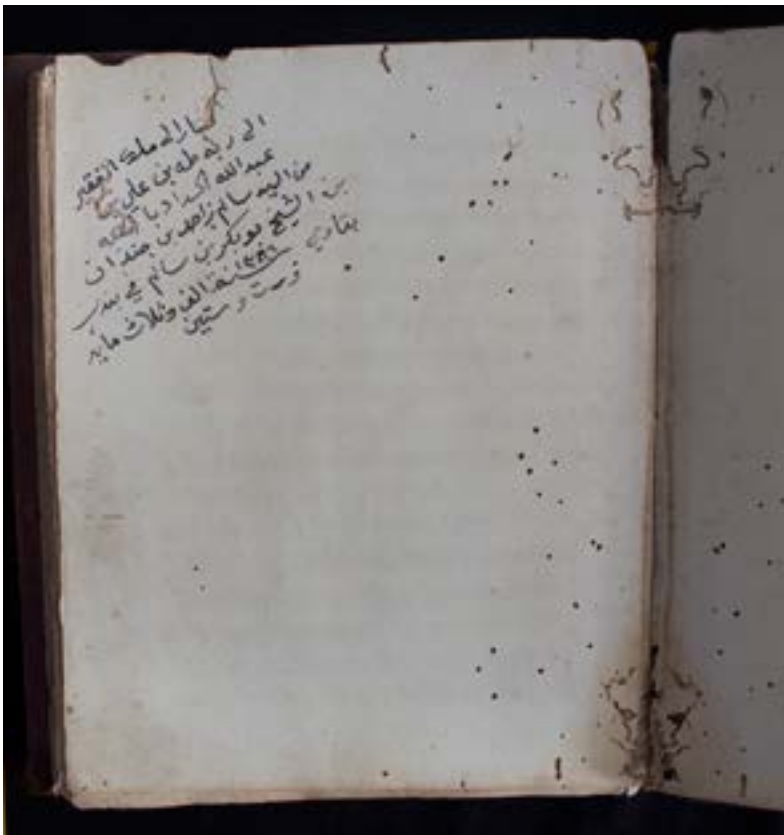 صار الى ملك الفقير
الى ربه طه بن علي
عبدالله الحداد
من السيد سالم بن احمد بن جندان
بن الشيخ بوبكر بن سالم في بندر
سنة الف وثلاث مايه
وست وستين